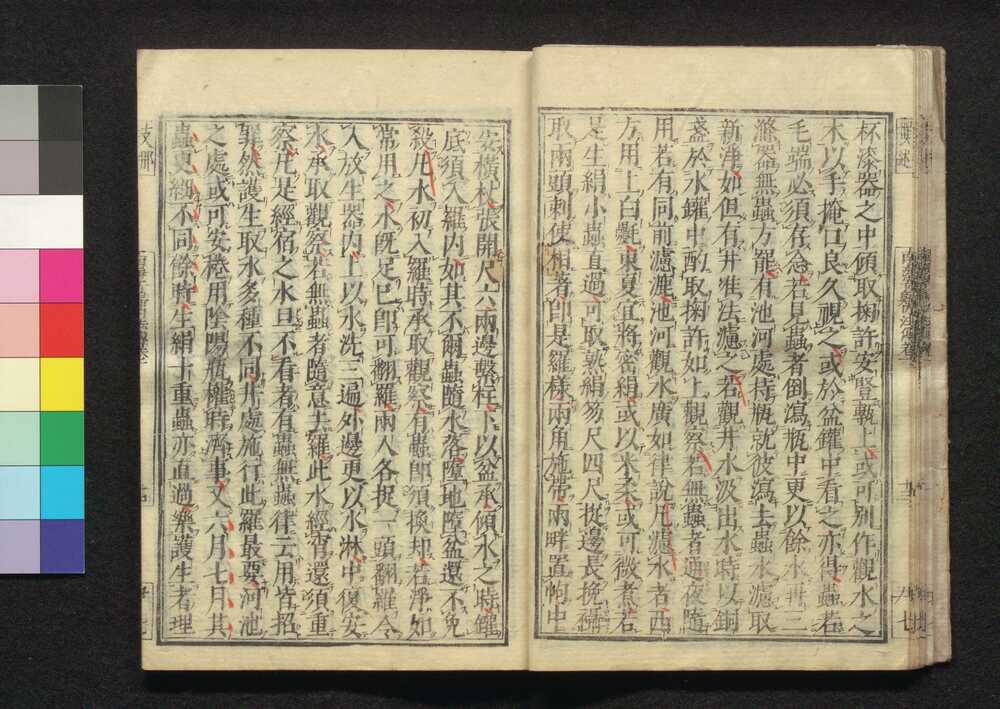 杯漆器之中傾取掬許安豎甎上或可別作觀水之
木以手掩口良久視之或於盆罐中看之亦得蟲若
毛端必須存念若見蟲者倒瀉瓶中更以餘水再三
滌器無蟲方罷有池河處持瓶就彼瀉去蟲水濾取
新淨如但有井准法濾之若觀井水汲出水時以銅
盞於水罐中酌取掬許如上觀察若無蟲者通夜隨
用若有同前濾漉池河觀水廣如律說凡濾水者西
方用上白氎東夏宜將密絹或以米柔或可微煮若
是生絹小蟲直過可取熟絹笏尺四尺捉邊長挽襵
取兩頭刺使相著即是羅樣兩角施帶兩畔置㡇中
安橫杖張開尺六兩邊繫柱下以盆承傾水之時罐
底須入羅內如其不爾蟲隨水落墮地墮盆還不免
殺凡水初入羅時承取觀察有蟲即須換却若淨如
常用之水既足已即可翻羅兩人各捉一頭翻羅令
入放生器內上以水洗三遍外邊更以水淋中復安
水承取觀察若無蟲者隨意去羅此水經宵還須重
察凡是經宿之水旦不看者有蟲無蟲律云用皆招
罪然護生取水多種不同井處施行此羅最要河池
之處或可安棬用陰陽瓶權時濟事又六月七月其
蟲更細不同餘時生絹十重蟲亦直過樂護生者理
支那